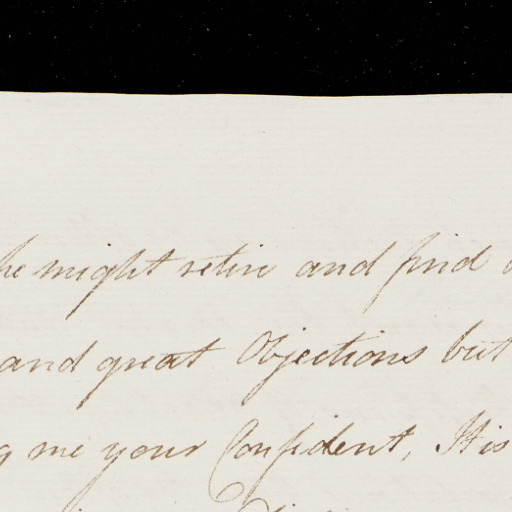 he might retire and find
and great Objections but
me your Confident, His